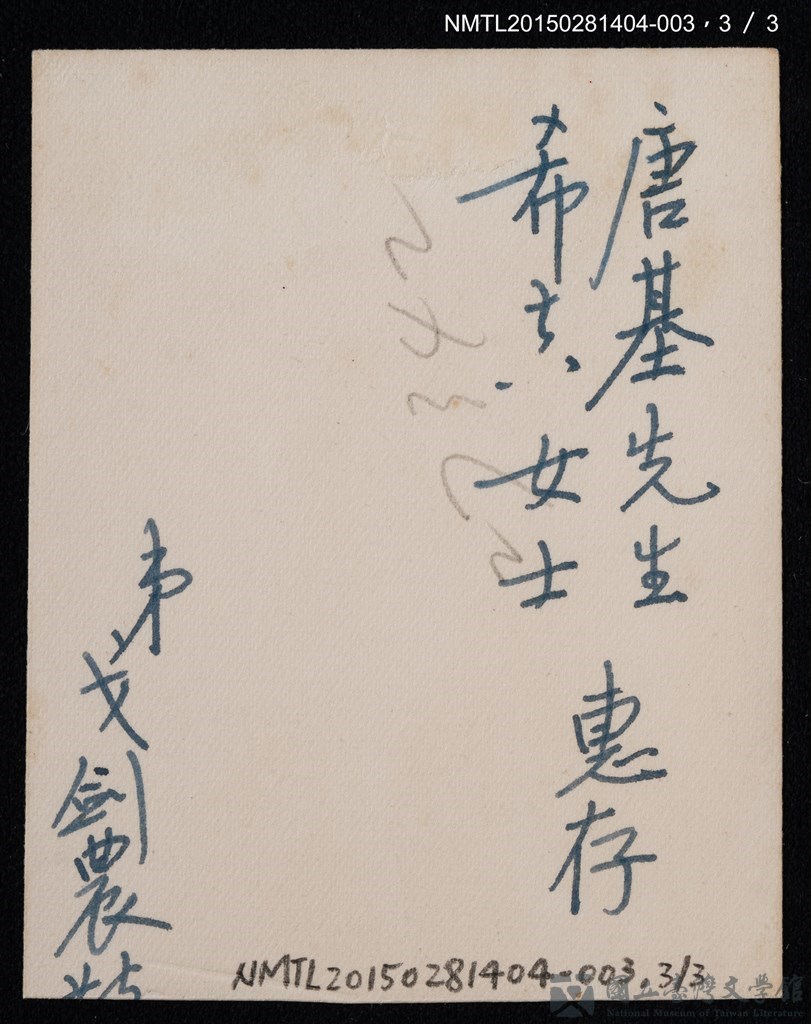 NMTL20150281404-003，3 / 3
唐基先生
希真女士
惠存
弟戈劍農
NMTL20150281404-003.3/3
國立臺灣文學館
National Museum of Taiwan Literature